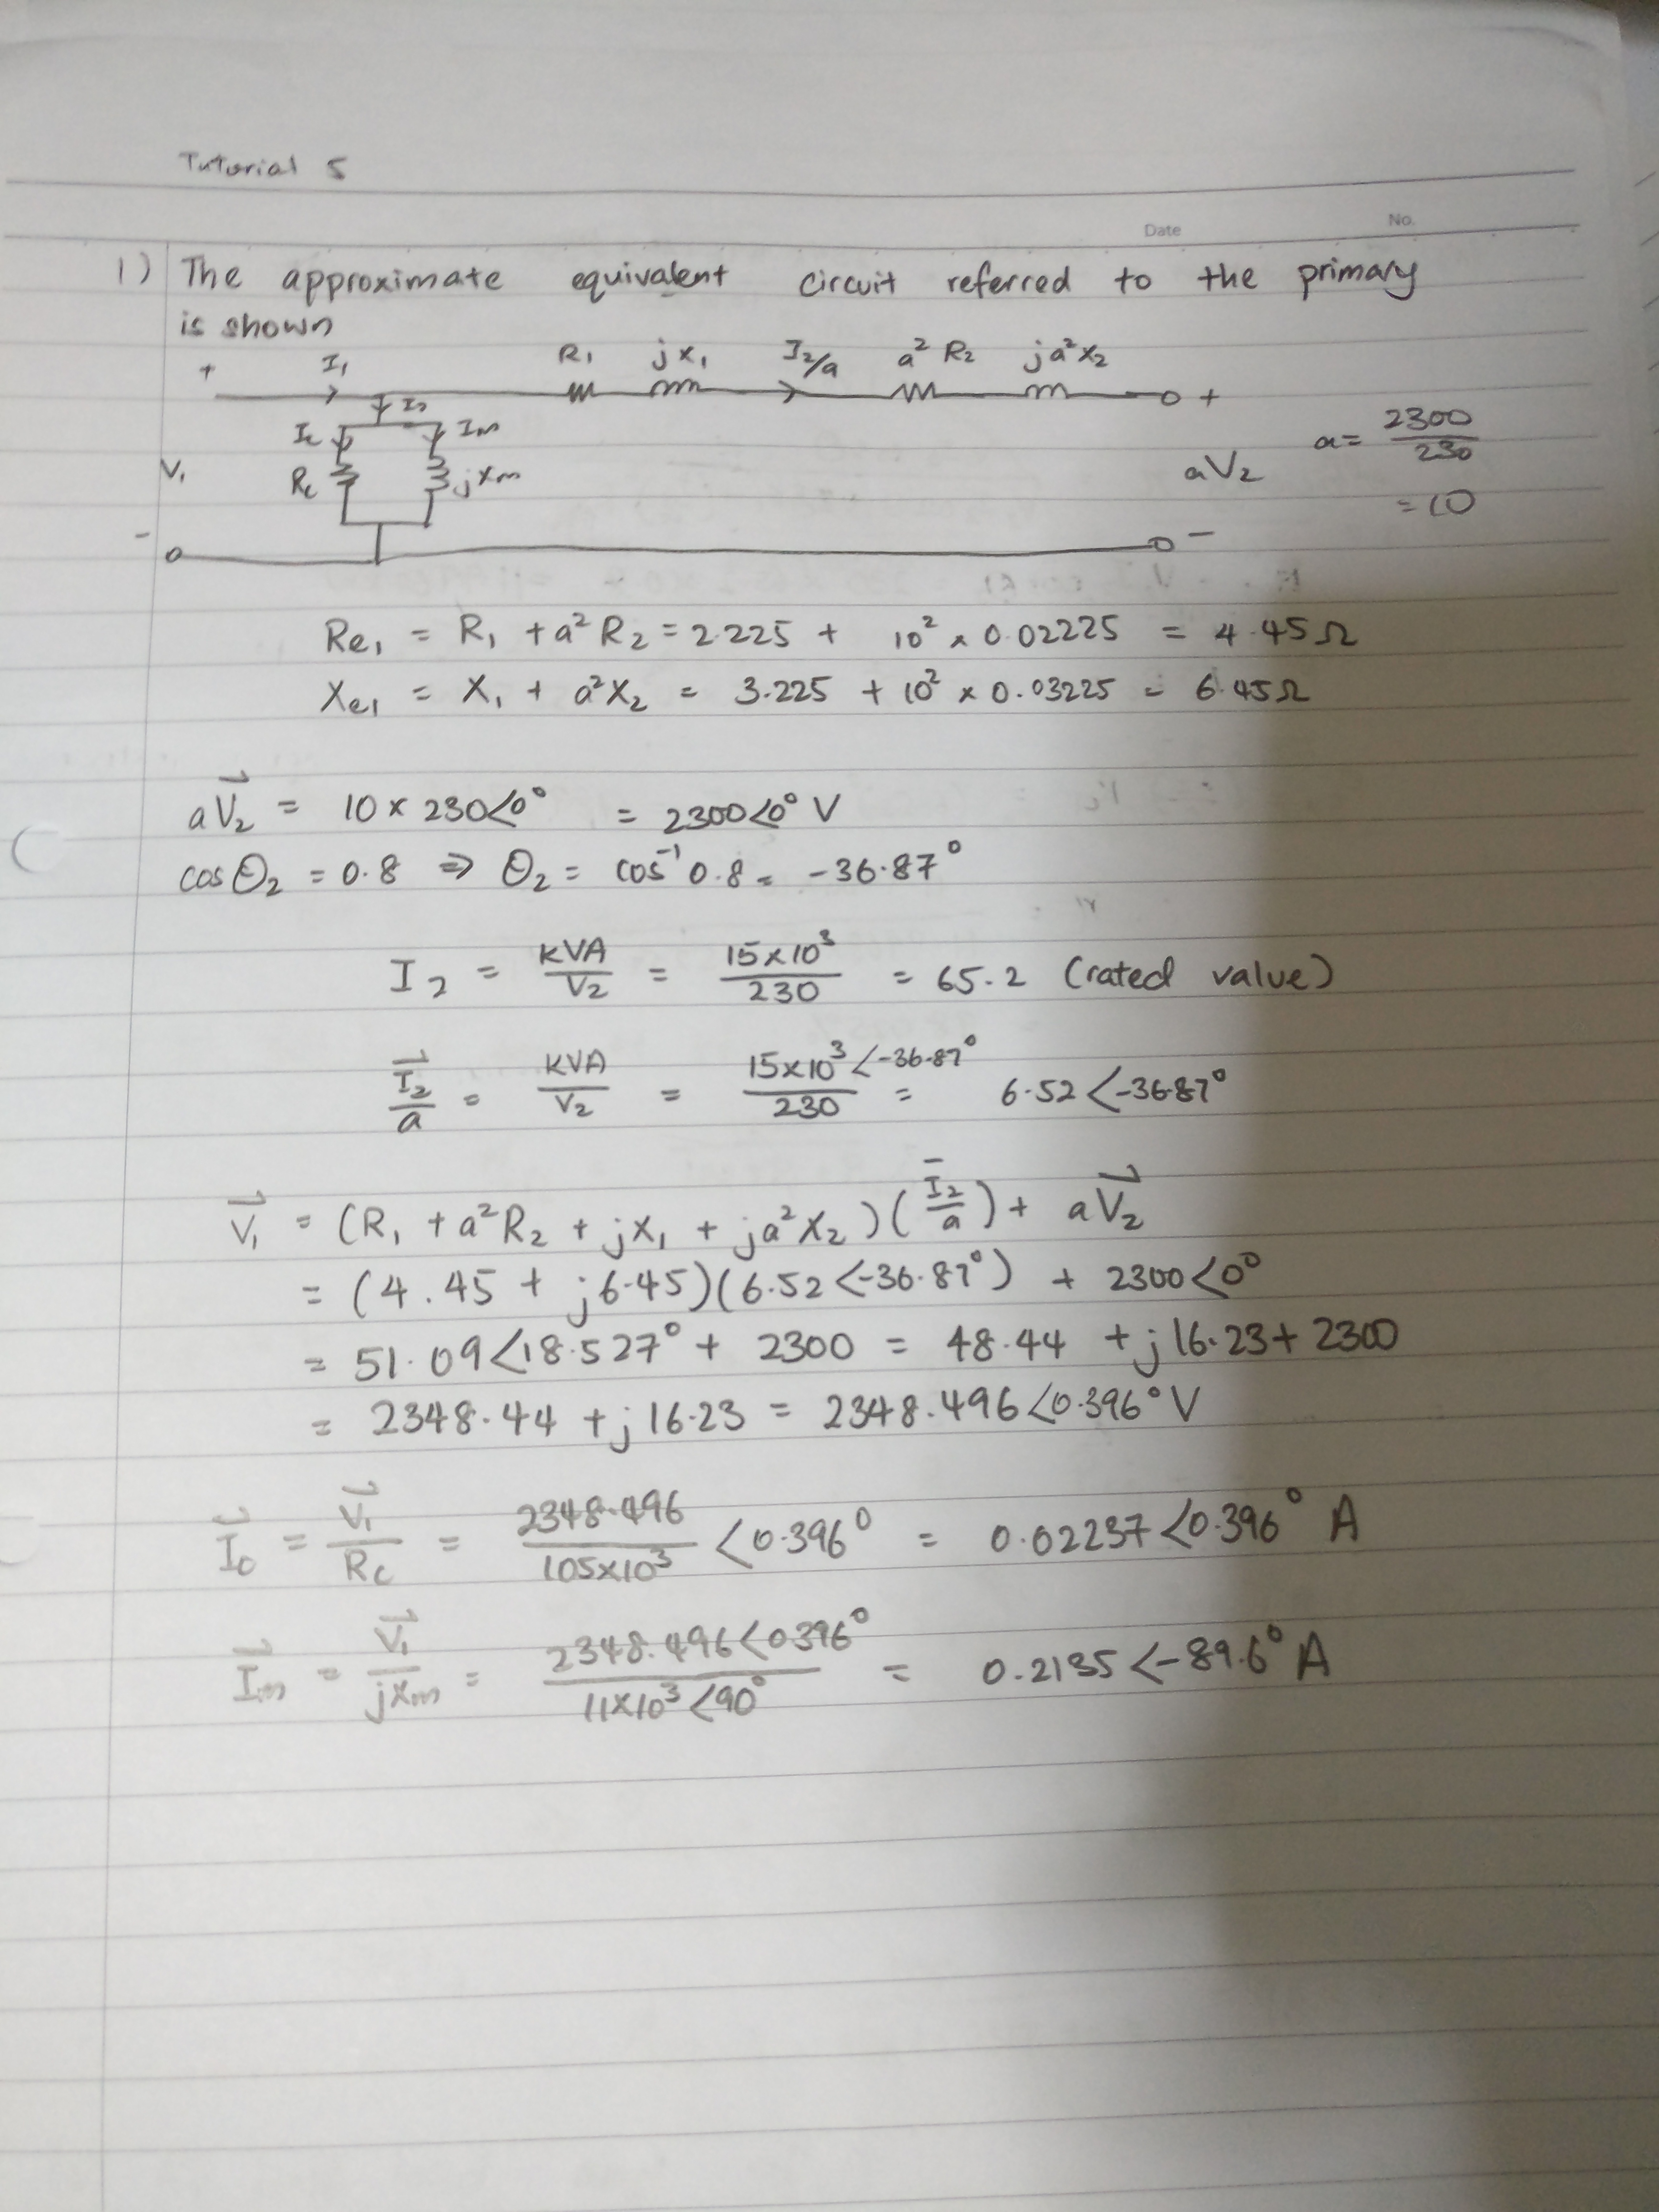 Tutorial 5
Date No.
1) The approximate equivalent circuit referred to the primary
is shown
+ I₁ R₁ jx₁ I₂/a a² R₂ ja²x₂ +
Ic Im
V₁ Rc jXm aV₂ a = 2300/230
= 10
- -
Re₁ = R₁ + a² R₂ = 2.225 + 10² × 0.02225 = 4.45Ω
Xe₁ = X₁ + a²X₂ = 3.225 + 10² × 0.03225 = 6.45Ω
aV⃗₂ = 10 × 230<0° = 2300<0° V
cos Θ₂ = 0.8 ⇒ Θ₂ = cos⁻¹ 0.8 = -36.87°
I₂ = KVA/V₂ = 15×10³/230 = 65.2 (rated value)
I⃗₂/a = KVA/V₂ = 15×10³<-36.87°/230 = 6.52<-36.87°
V⃗₁ = (R₁ + a²R₂ + jx₁ + ja²X₂)(I̅₂/a) + aV⃗₂
= (4.45 + j6.45)(6.52<-36.87°) + 2300<0°
= 51.09<18.527° + 2300 = 48.44 + j16.23 + 2300
= 2348.44 + j16.23 = 2348.496<0.396° V
I⃗c = V⃗₁/Rc = 2348.496/105×10³ <0.396° = 0.02237<0.396° A
I⃗m = V⃗₁/jXm = 2348.496<0.396°/11×10³<90° = 0.2135<-89.6° A